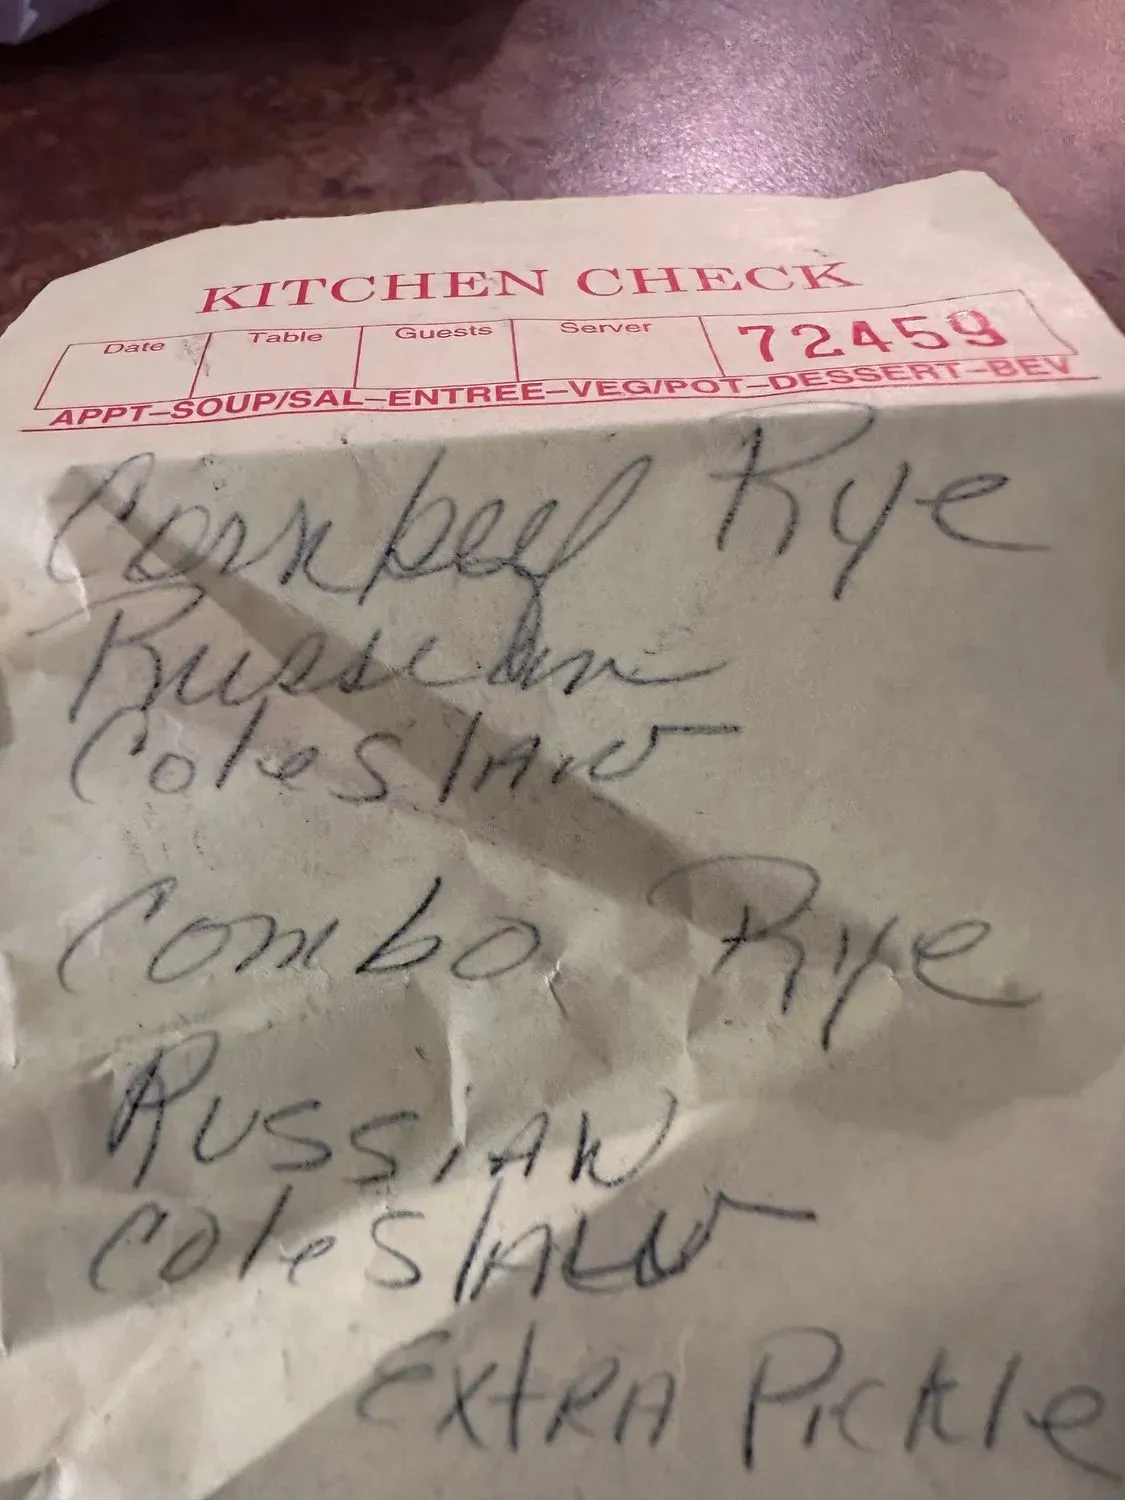 KITCHEN CHECK
Date Table Guests Server 72459
APPT-SOUP/SAL-ENTREE-VEG/POT-DESSERT-BEV
Cornbeef Rye
Russian
Coleslaw
Combo Rye
Russian
Coleslaw
Extra Pickle